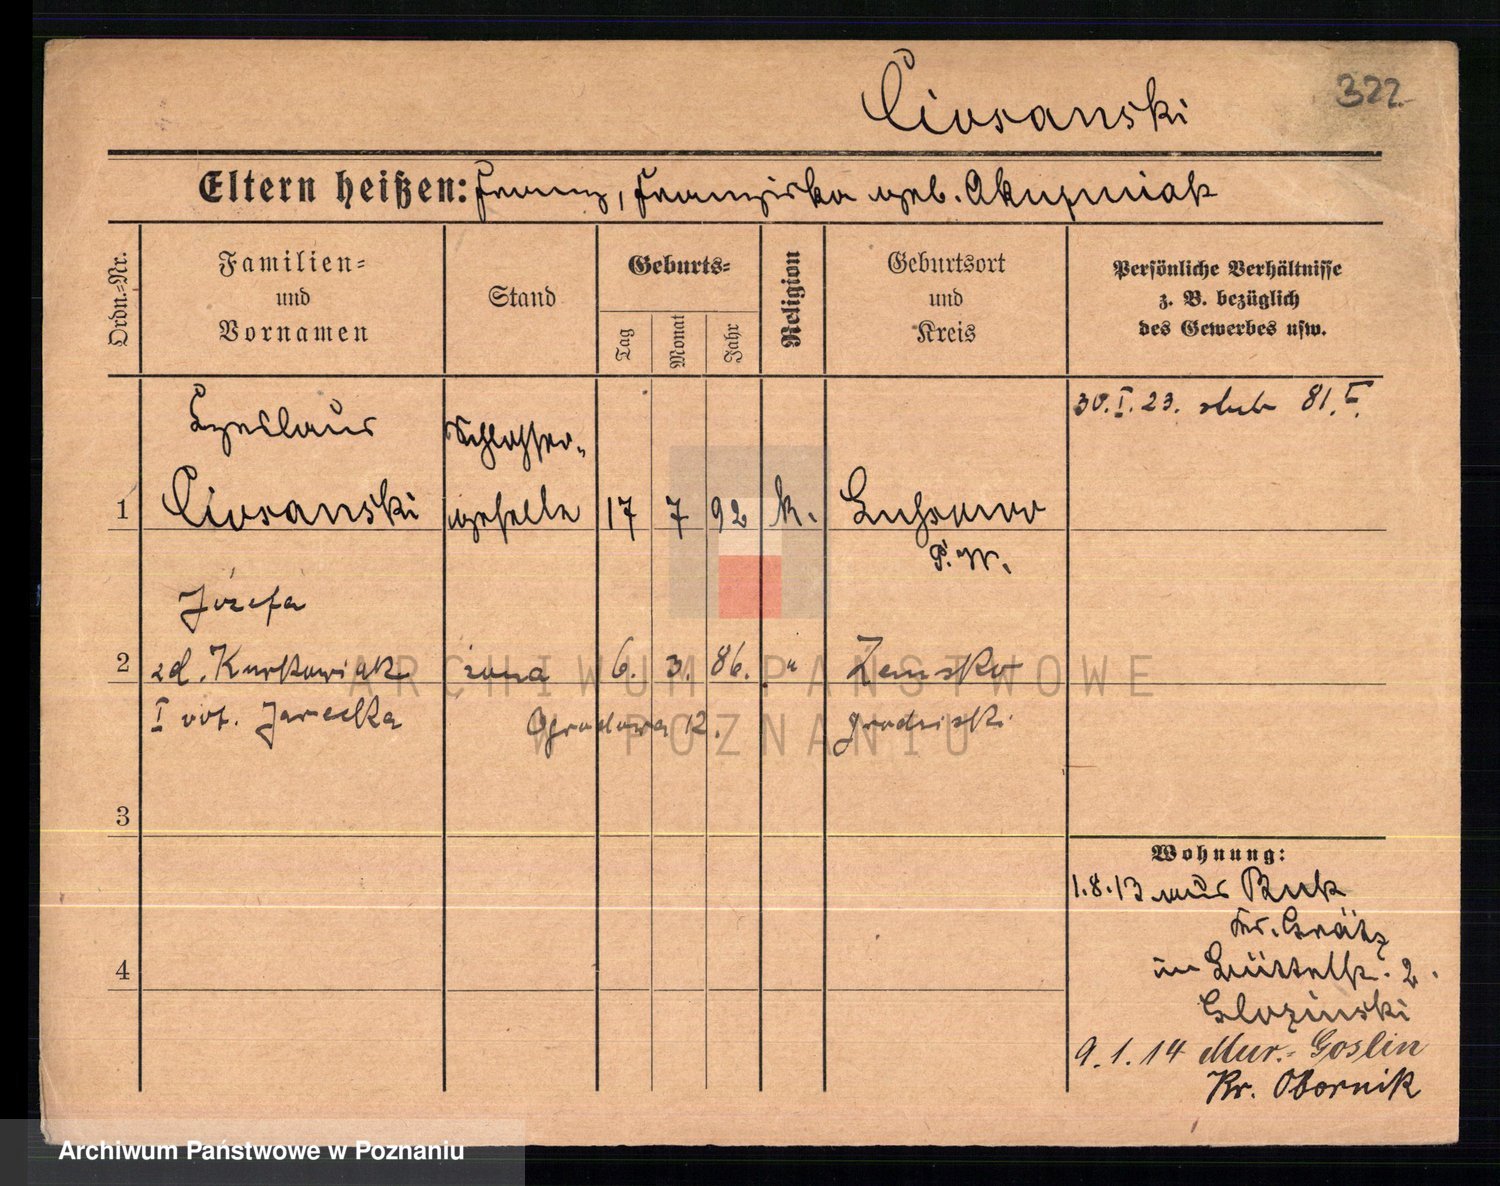 322.
Ciosanski
Eltern heißen: Franz, Franziska geb. Skuzniak
Ordn.-Nr.
Familien-
und
Vornamen
Stand
Geburts-
Tag
Monat
Jahr
Religion
Geburtsort
und
Kreis
Persönliche Verhältnisse
z. B. bezüglich
des Gewerbes usw.
30.I.23. ślub 81.
Czeslaus
Schlosser-
1 Ciosanski geselle 17 7 92 k.
P. W.
Józefa
2 zd. Kurkowiak żona 6. 3. 86. "
I vot. Jarecka Ogrodowa 12. grodziski
3
4
Wohnung:
1.8.13 aus Buk
Kr. Grätz
2.
Glozinski
9.1.14 Mur.-Goslin
Kr. Obornik
ARCHIWUM PAŃSTWOWE
W POZNANIU
Archiwum Państwowe w Poznaniu